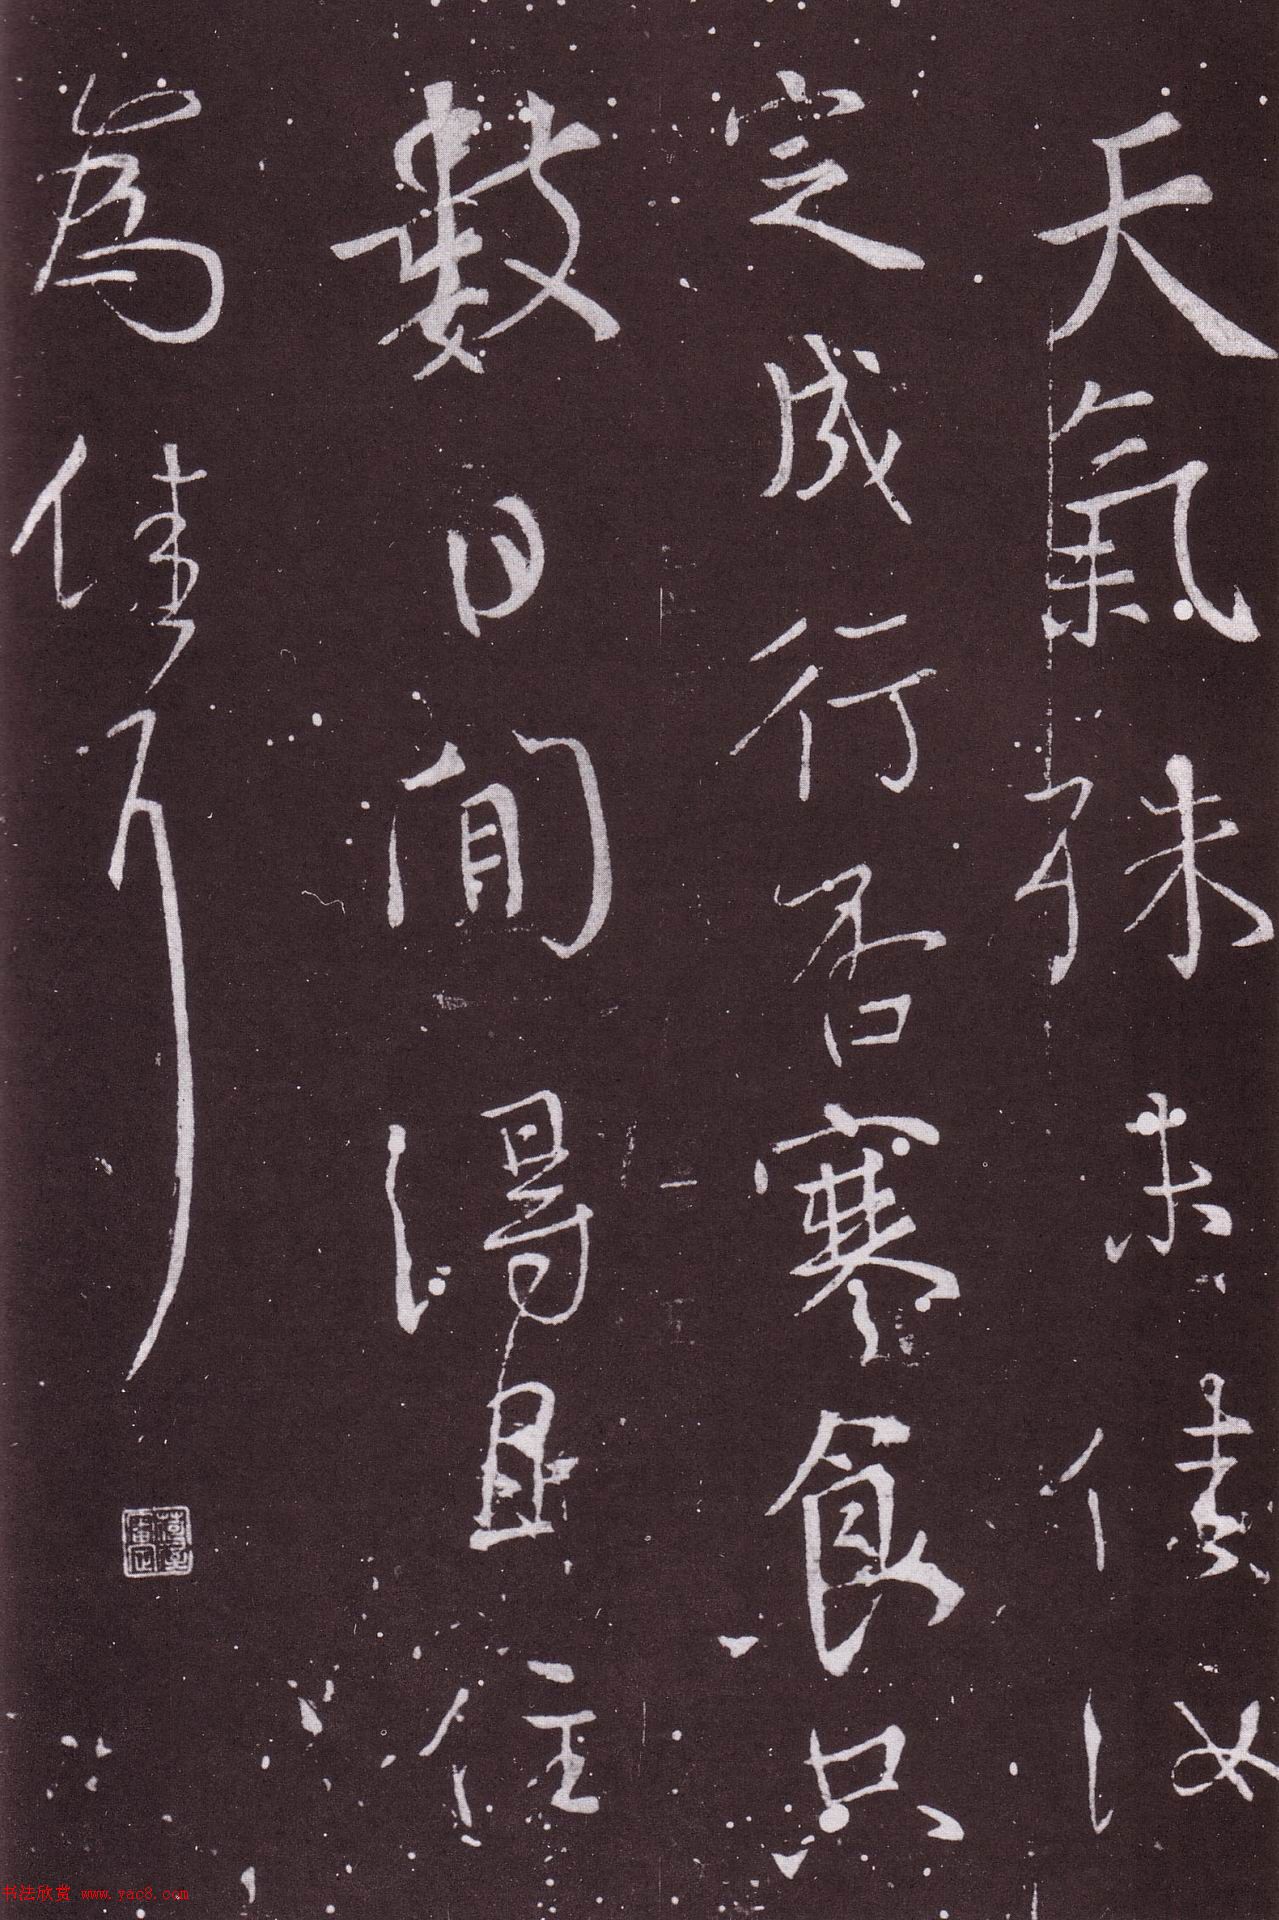 天氣殊未佳汝
定成行否寒食只
數日間得且住
為佳耳
书法欣赏 www.yac8.com